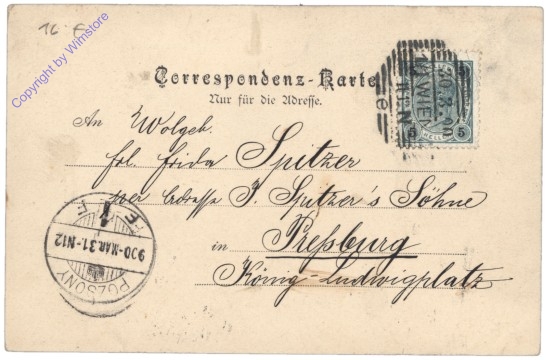 16 €
Copyright by Wimstore
Correspondenz-Karte
Nur für die Adresse.
WIEN
5 5
An Wolgeb.
Frl. Frida Spitzer
per Adresse J. Spitzer's Söhne
in Preßburg
König-Ludwigplatz
POZSONY
900-MAR.31-N12